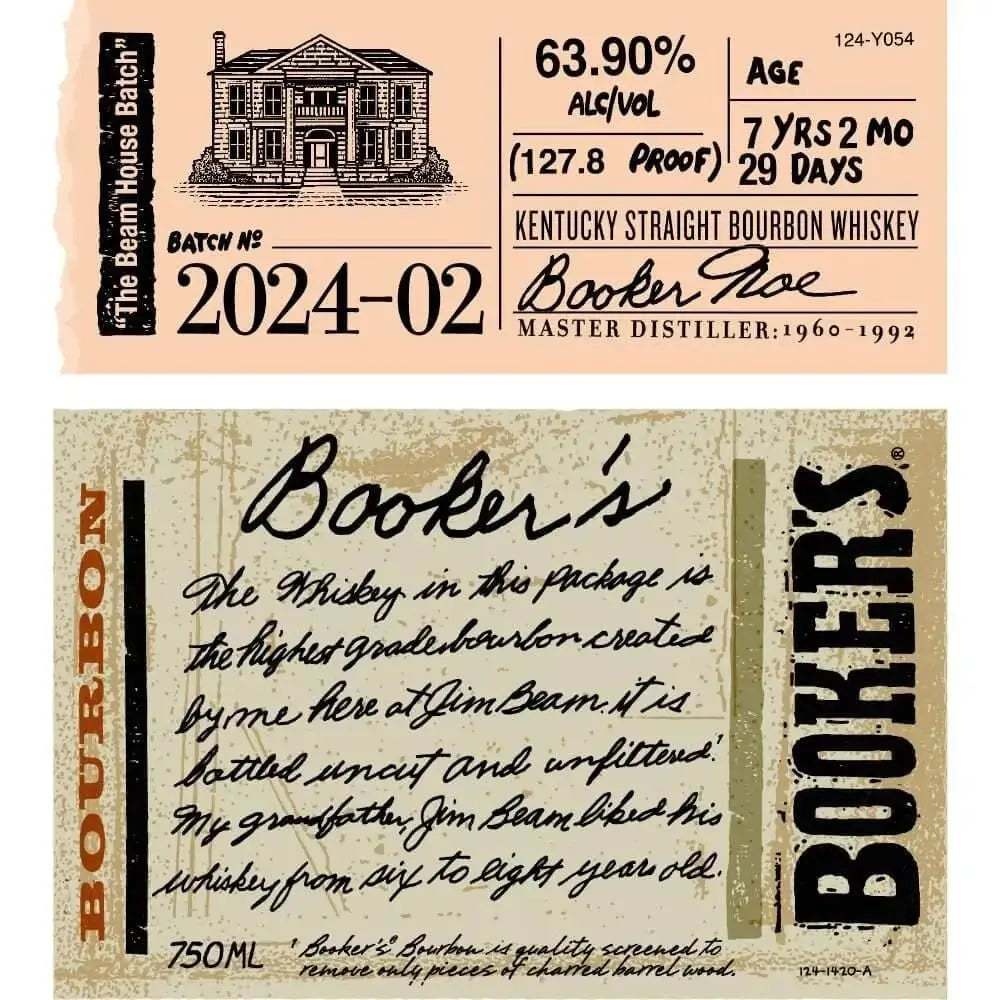 "The Beam House Batch"
BATCH Nº
2024-02
63.90%
ALC/VOL
(127.8 PROOF)
124-Y054
AGE
7 YRS 2 MO
29 DAYS
KENTUCKY STRAIGHT BOURBON WHISKEY
Booker Noe
MASTER DISTILLER: 1960-1992
BOURBON
Booker's
The Whiskey in this package is
the highest grade bourbon created
by me here at Jim Beam. it is
bottled uncut and unfiltered.¹
My grandfather, Jim Beam liked his
whiskey from six to eight years old.
750ML
¹ Booker's® Bourbon is quality screened to
remove only pieces of charred barrel wood.
BOOKER'S®
124-1420-A